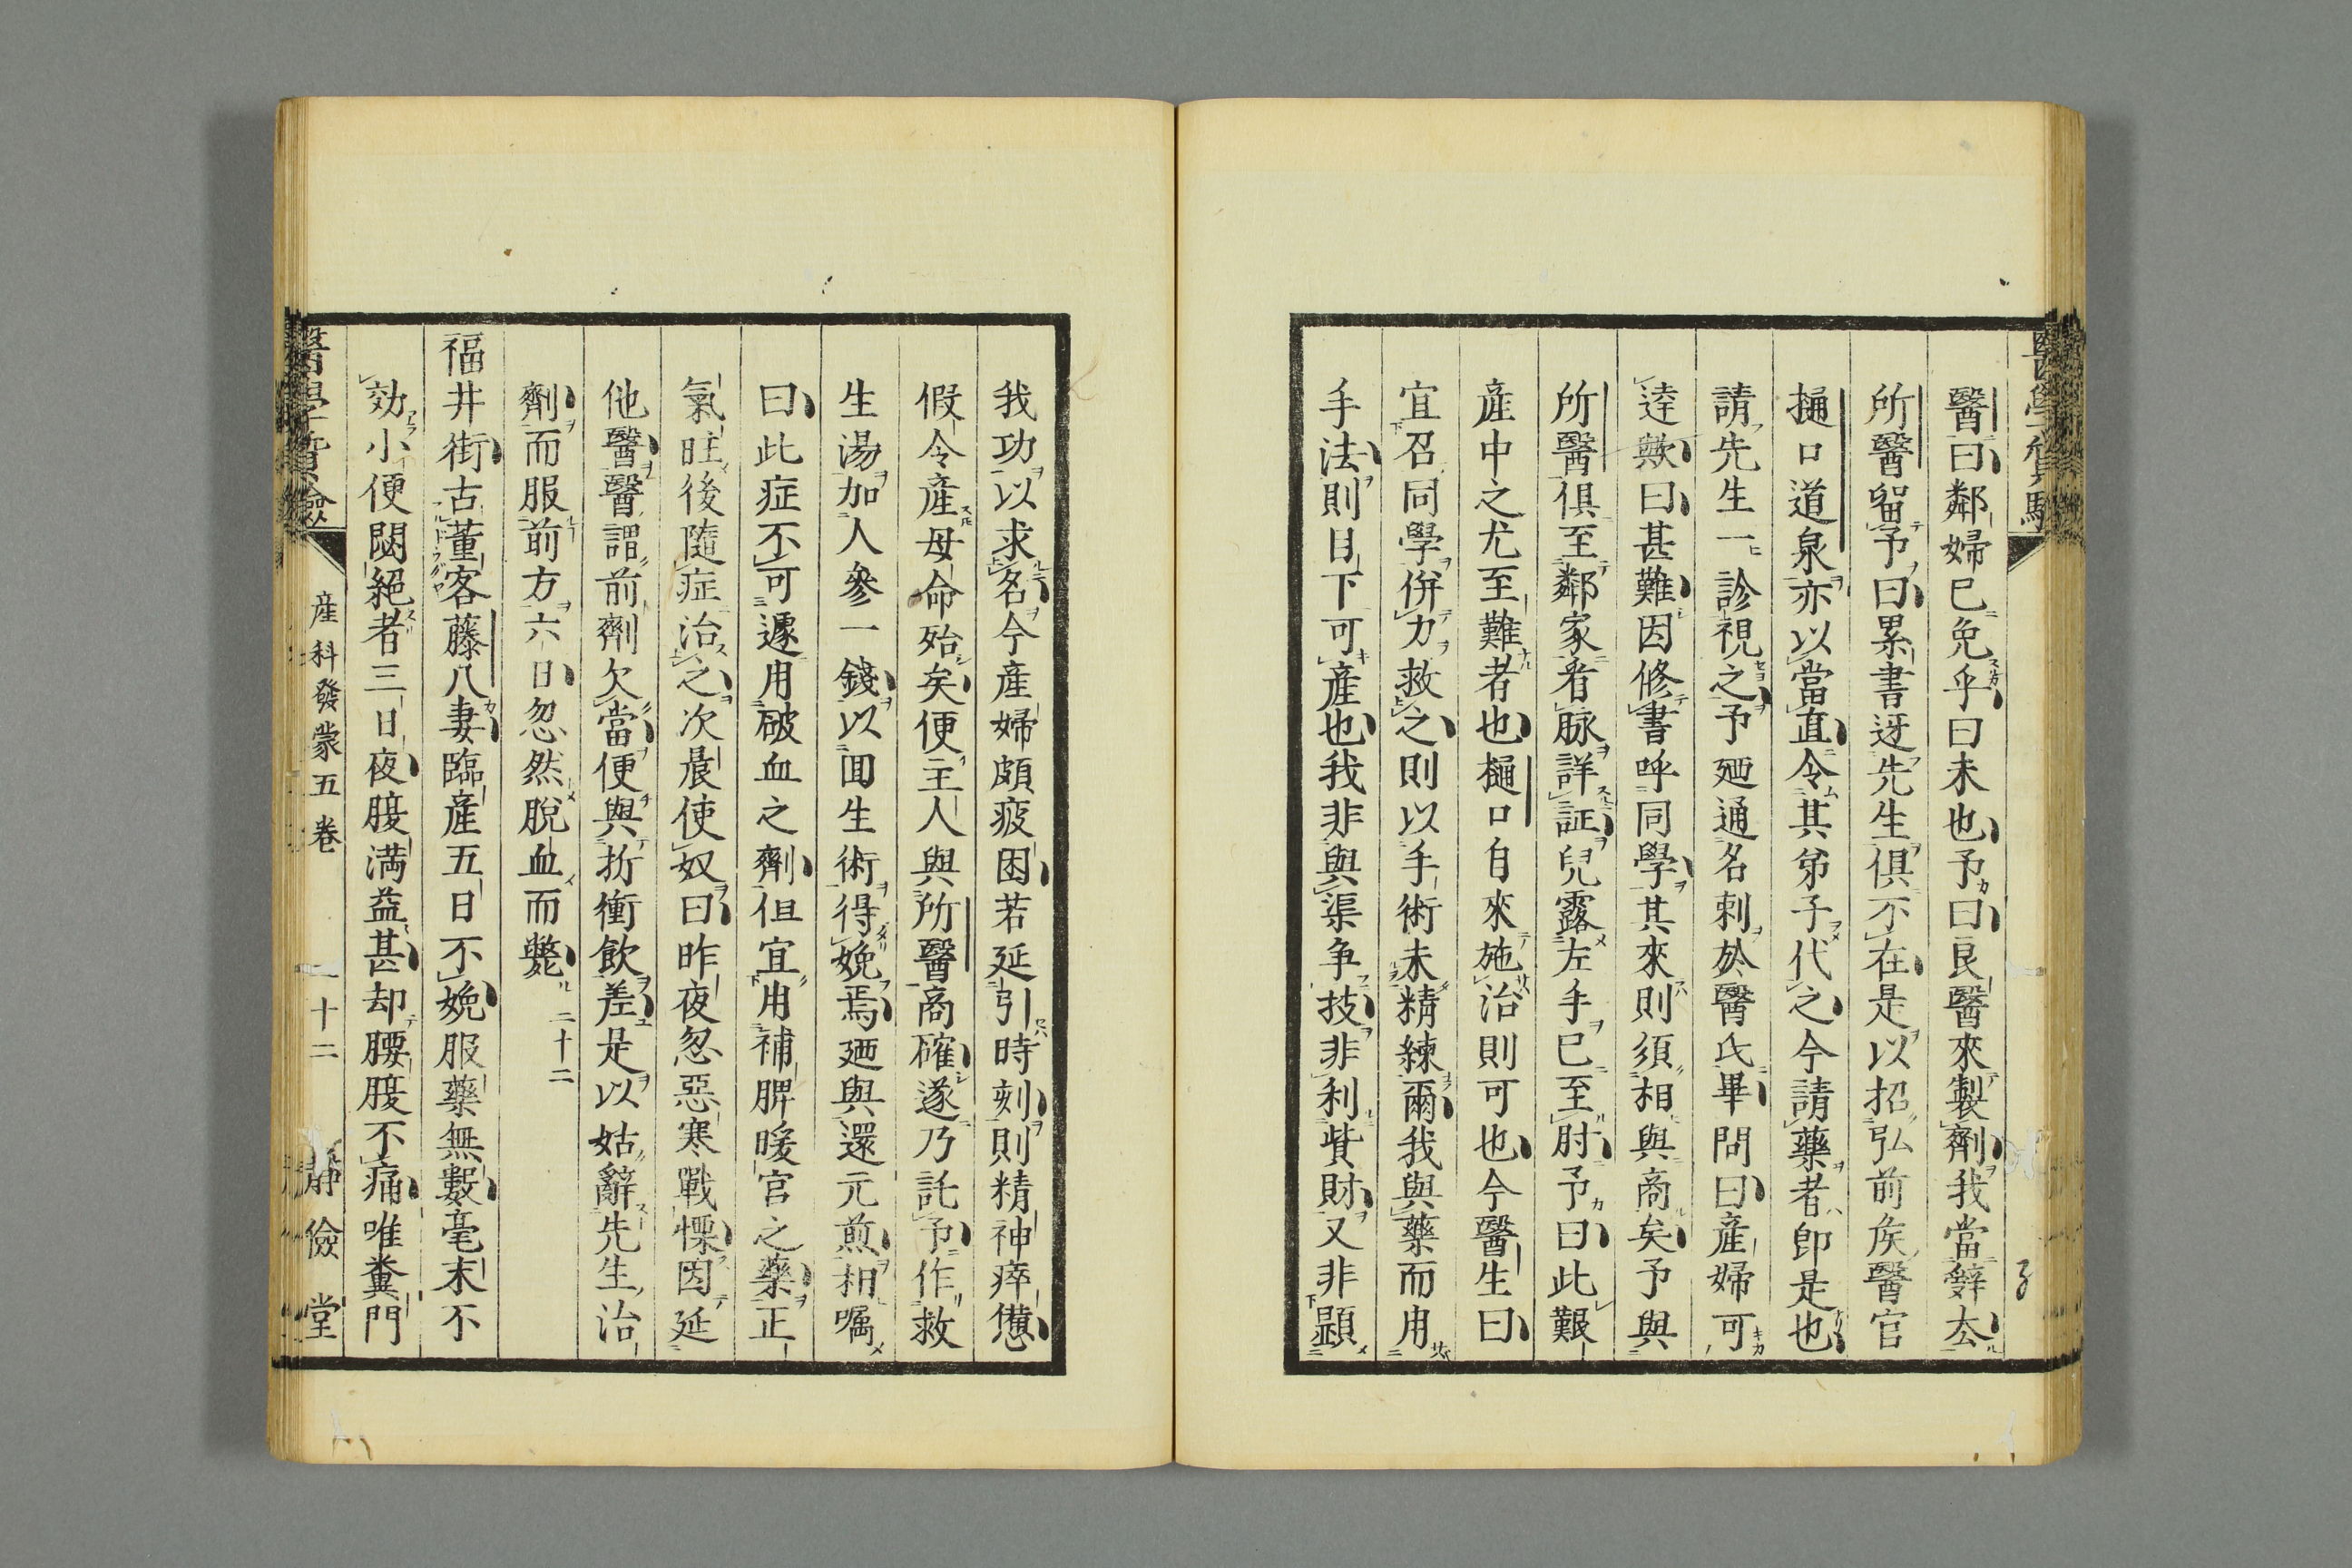 醫曰鄰婦已免乎曰未也予曰良醫來製劑我當辭厺
所醫留予曰累書迓先生俱不在是以招弘前矦醫官
樋口道泉亦以當直令其弟子代之今請藥者即是也
請先生一診視之予廼通名刺於醫氏畢問曰產婦可
逹歟曰甚難因修書呼同學其來則須相與商矣予與
所醫俱至鄰家看脉詳証兒露左手已至肘予曰此艱
產中之尤至難者也樋口自來施治則可也今醫生曰
宜召同學併力救之則以手術未精練爾我與藥而用
手法則目下可產也我非與渠争技非利貲財又非顕
我功以求名今產婦頗疲困若延引時刻則精神瘁憊
假令產母命殆矣便主人與所醫商確遂乃託予作救
生湯加人參一錢以囬生術得娩焉廼與還元煎相囑
曰此症不可遽用破血之劑但宜用補脾暖宮之藥正
氣旺後隨症治之次晨使奴曰昨夜忽惡寒戰慄因延
他醫醫謂前劑欠當便與折衝飲差是以姑辭先生治
劑而服前方六日忽然脫血而斃 二十二
福井街古董客藤八妻臨產五日不娩服藥無數毫末不
効小便閟絕者三日夜腹満益甚却腰腹不痛唯糞門
醫學實驗
產科發蒙五卷
二十二
靜儉堂